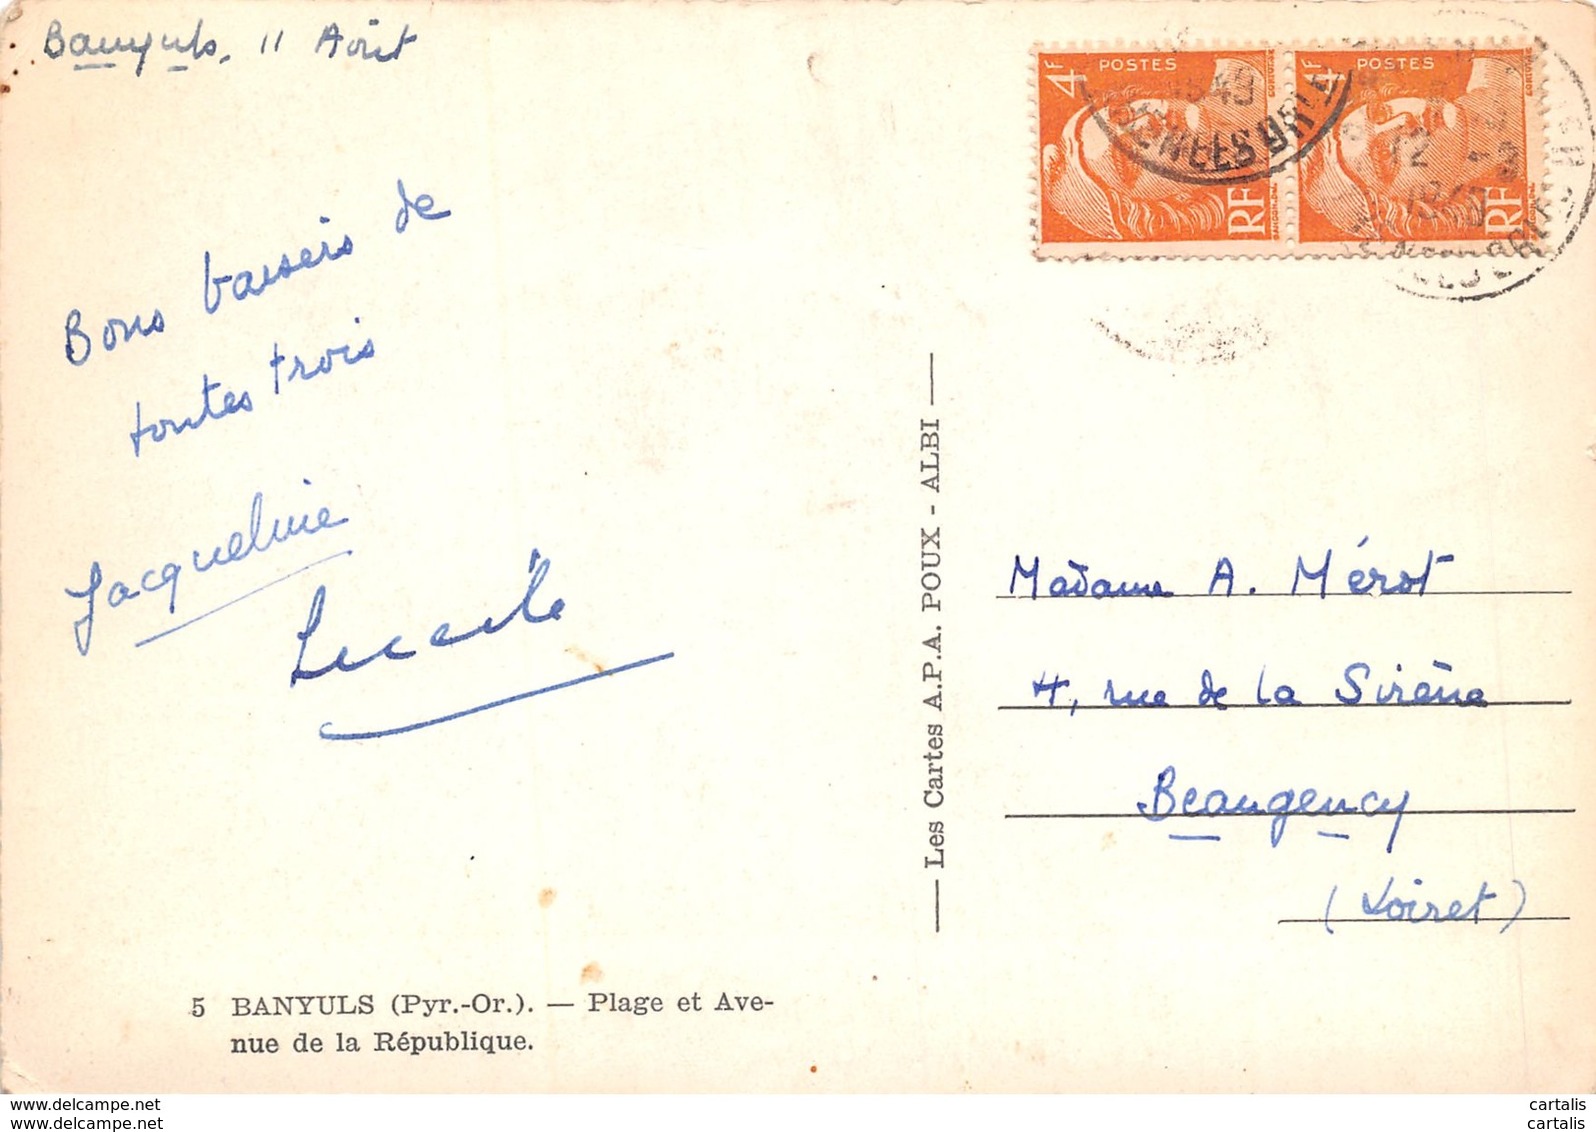 Banyuls, 11 Août
Bons baisers de
toutes trois
Jacqueline
Lucile
4F POSTES RF
4F POSTES RF
Les Cartes A.P.A. POUX - ALBI
Madame A. Mérot
4, rue de la Sirène
Beaugency
(Loiret)
5 BANYULS (Pyr.-Or.). — Plage et Ave-
nue de la République.
www.delcampe.net
your_username
cartalis
cartalis